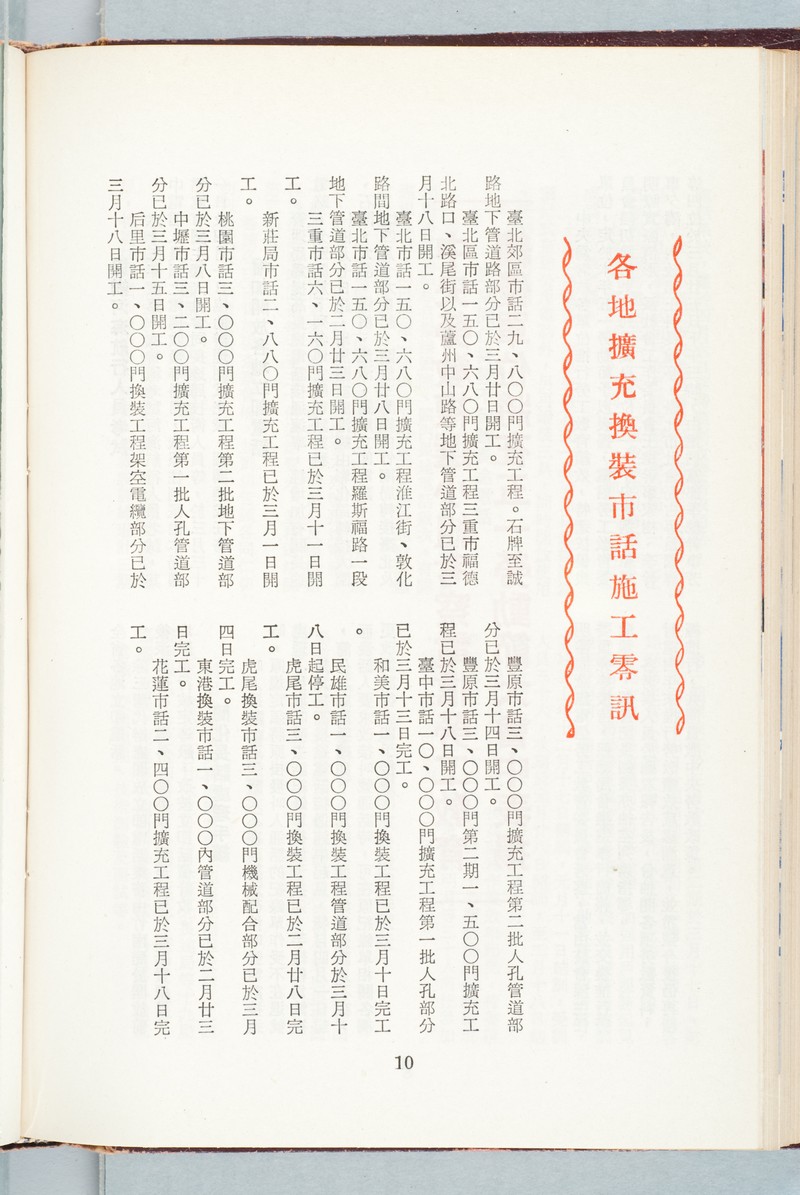 各地擴充換裝市話施工零訊
臺北郊區市話二九、八〇〇門擴充工程。石牌至誠
路地下管道路部分已於三月廿日開工。
臺北區市話一五〇、六八〇門擴充工程三重市福德
北路口、溪尾街以及蘆州中山路等地下管道部分已於三
月十八日開工。
臺北市話一五〇、六八〇門擴充工程淮江街、敦化
路間地下管道部分已於三月廿八日開工。
臺北市話一五〇、六八〇門擴充工程羅斯福路一段
地下管道部分已於二月廿三日開工。
三重市話六、一六〇門擴充工程已於三月十一日開
工。
新莊局市話二、八八〇門擴充工程已於三月一日開
工。
桃園市話三、〇〇〇門擴充工程第二批地下管道部
分已於三月八日開工。
中壢市話三、二〇〇門擴充工程第一批人孔管道部
分已於三月十五日開工。
后里市話一、〇〇〇門換裝工程架空電纜部分已於
三月十八日開工。
豐原市話三、〇〇〇門擴充工程第二批人孔管道部
分已於三月十四日開工。
豐原市話三、〇〇〇門第二期一、五〇〇門擴充工
程已於三月十八日開工。
臺中市話一〇、〇〇〇門擴充工程第一批人孔部分
已於三月十三日完工。
和美市話一、〇〇〇門換裝工程已於三月十日完工
。
民雄市話一、〇〇〇門換裝工程管道部分於三月十
八日起停工。
虎尾市話三、〇〇〇門換裝工程已於二月廿八日完
工。
虎尾換裝市話三、〇〇〇門機械配合部分已於三月
四日完工。
東港換裝市話一、〇〇〇內管道部分已於二月廿三
日完工。
花蓮市話二、四〇〇門擴充工程已於三月十八日完
工。
10